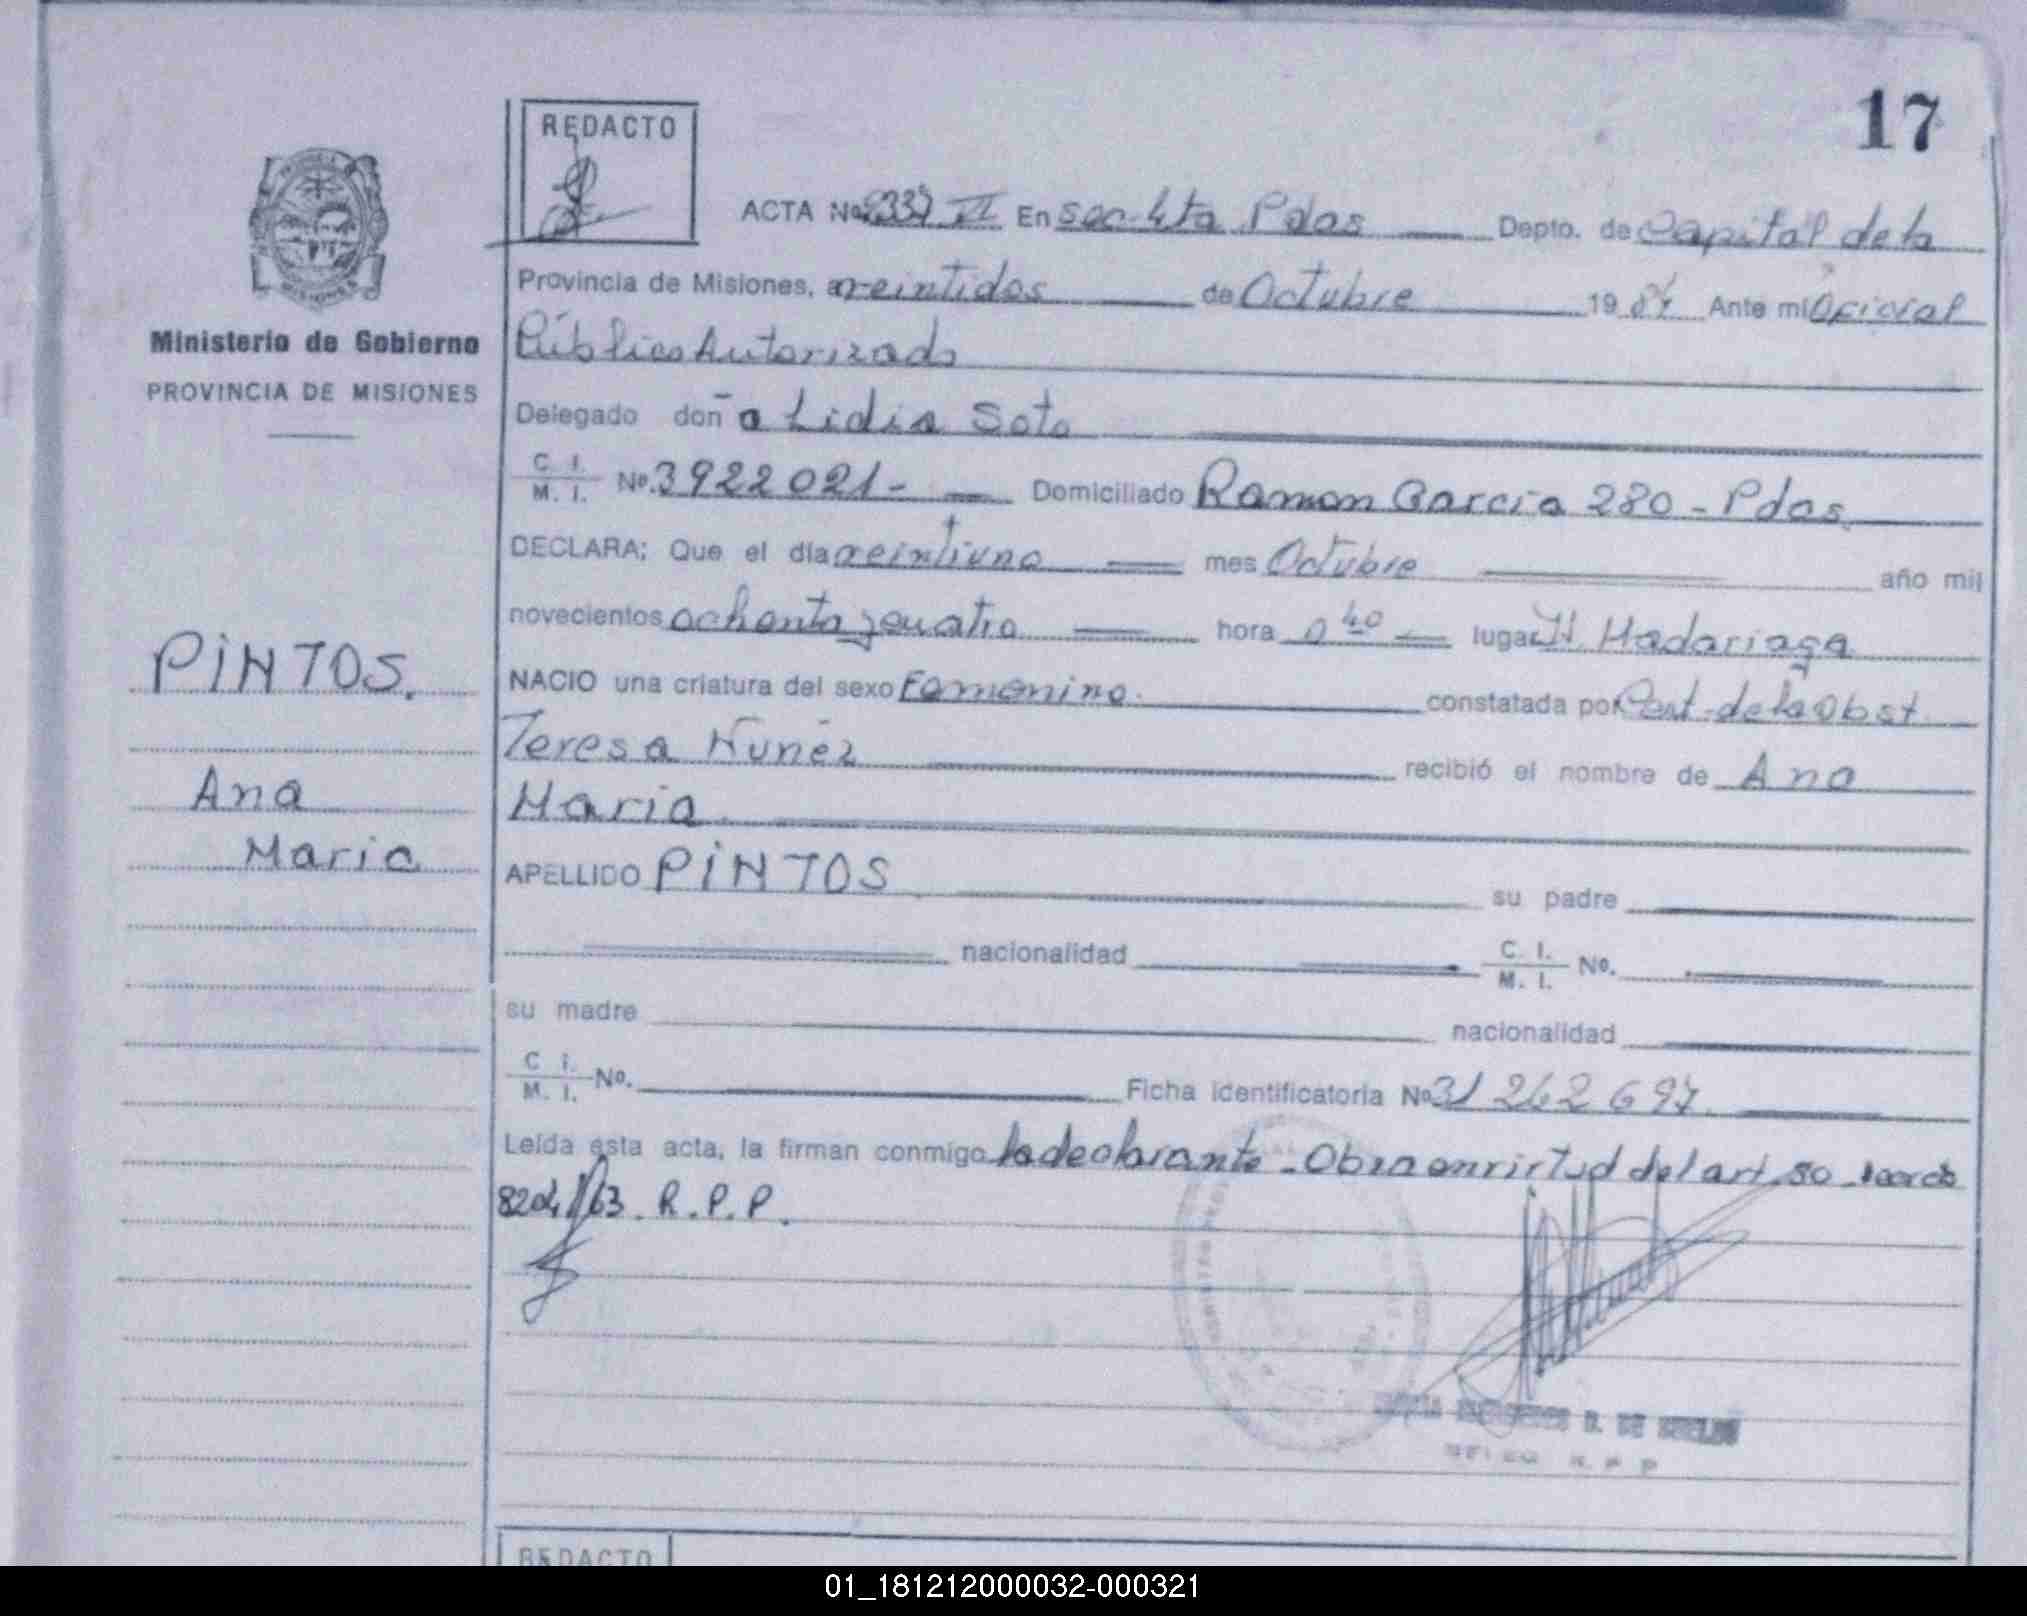 17
REDACTO
ACTA No. 2337 VI En sec. 4ta Pdas Depto. de Capital de la
Provincia de Misiones, a veintidos de Octubre 1984 Ante mi Oficial
Ministerio de Gobierno
Público Autorizado
PROVINCIA DE MISIONES
Delegado doña Lidia Soto
C. I. M. I. No. 3922021- Domiciliado Ramon Garcia 280 - Pdas.
DECLARA: Que el día veintiuno mes Octubre año mil
novecientos ochenta y cuatro hora 0 40 lugar H. Madariaga
PINTOS.
NACIO una criatura del sexo Femenino. constatada por Cert. de la Obst.
Teresa Nuñez recibió el nombre de Ana
Ana
Maria
Maria
APELLIDO PINTOS su padre
nacionalidad C. I. M. I. No.
su madre nacionalidad
C. I. M. I. No. Ficha identificatoria No 31 262 697.
Leída esta acta, la firman conmigo la declarante - Obra en virtud del art. 80
8204/63. R.P.P.
REDACTO
01_181212000032-000321